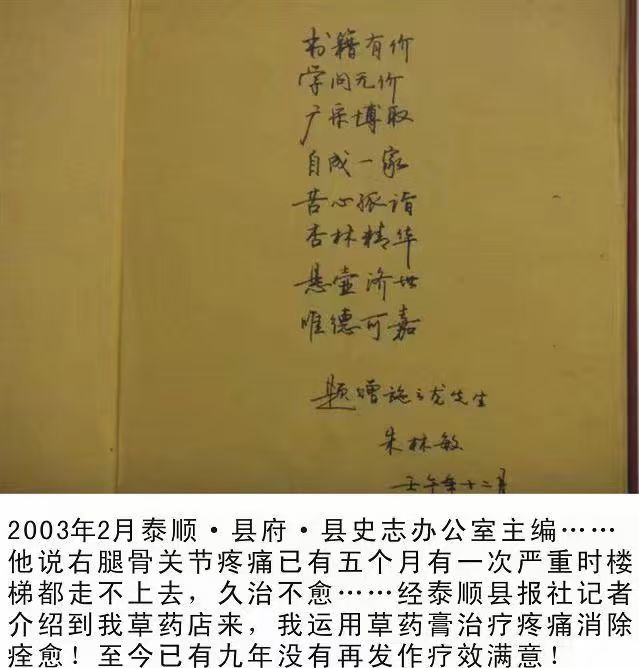 书籍有价
学问无价
广采博取
自成一家
苦心孤诣
杏林精华
悬壶济世
唯德可嘉
题赠施云龙先生
朱林敏
壬午年十二月
2003年2月泰顺·县府·县史志办公室主编……
他说右腿骨关节疼痛已有五个月有一次严重时楼
梯都走不上去，久治不愈……经泰顺县报社记者
介绍到我草药店来，我运用草药膏治疗疼痛消除
痊愈！至今已有九年没有再发作疗效满意！